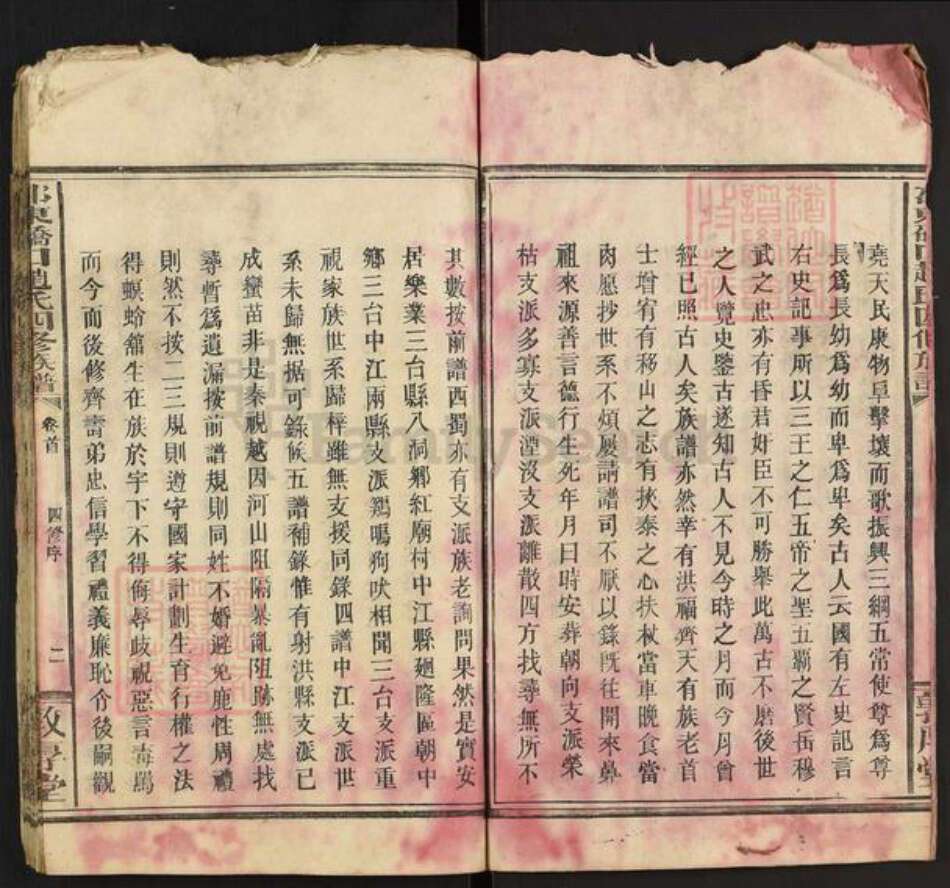 堯天民康物阜擊壤而歌振興三綱五常使尊爲尊
長爲長幼爲幼而卑爲卑矣古人云國有左史記言
右史記事所以三王之仁五帝之聖五霸之賢岳穆
武之忠亦有昏君奸臣不可勝舉此萬古不磨後世
之人覽史鑒古遂知古人不見今時之月而今月曾
經已照古人矣族譜亦然幸有洪福齊天有族老首
士增宥有移山之志有挾泰之心扶杖當車晚食當
肉愿抄世系不煩屡請譜司不厭以錄既往開來鼻
祖來源善言德行生死年月日時安葬朝向支派榮
枯支派多寡支派湮沒支派離散四方找尋無所不
其數按前譜西蜀亦有支派族老詢問果然是實安
居樂業三台縣八洞鄉紅廟村中江縣廻隆區朝中
鄉三台中江兩縣支派鷄鳴狗吠相聞三台支派重
視家族世系歸梓雖無支援同錄四譜中江支派世
系未歸無据可錄候五譜補錄惟有射洪縣支派已
成蠻苗非是秦視越因河山阻隔暴亂阻跡無處找
尋暫爲遺漏按前譜規則同姓不婚避免鹿性周禮
則然不按二三規則遵守國家計劃生育行權之法
得螟蛉舘生在族於宇下不得侮辱歧視惡言毒罵
而今而後修齊壽弟忠信學習禮義廉恥令後嗣觀
橋口趙氏四修族譜
卷首
四修序
二
敦厚堂